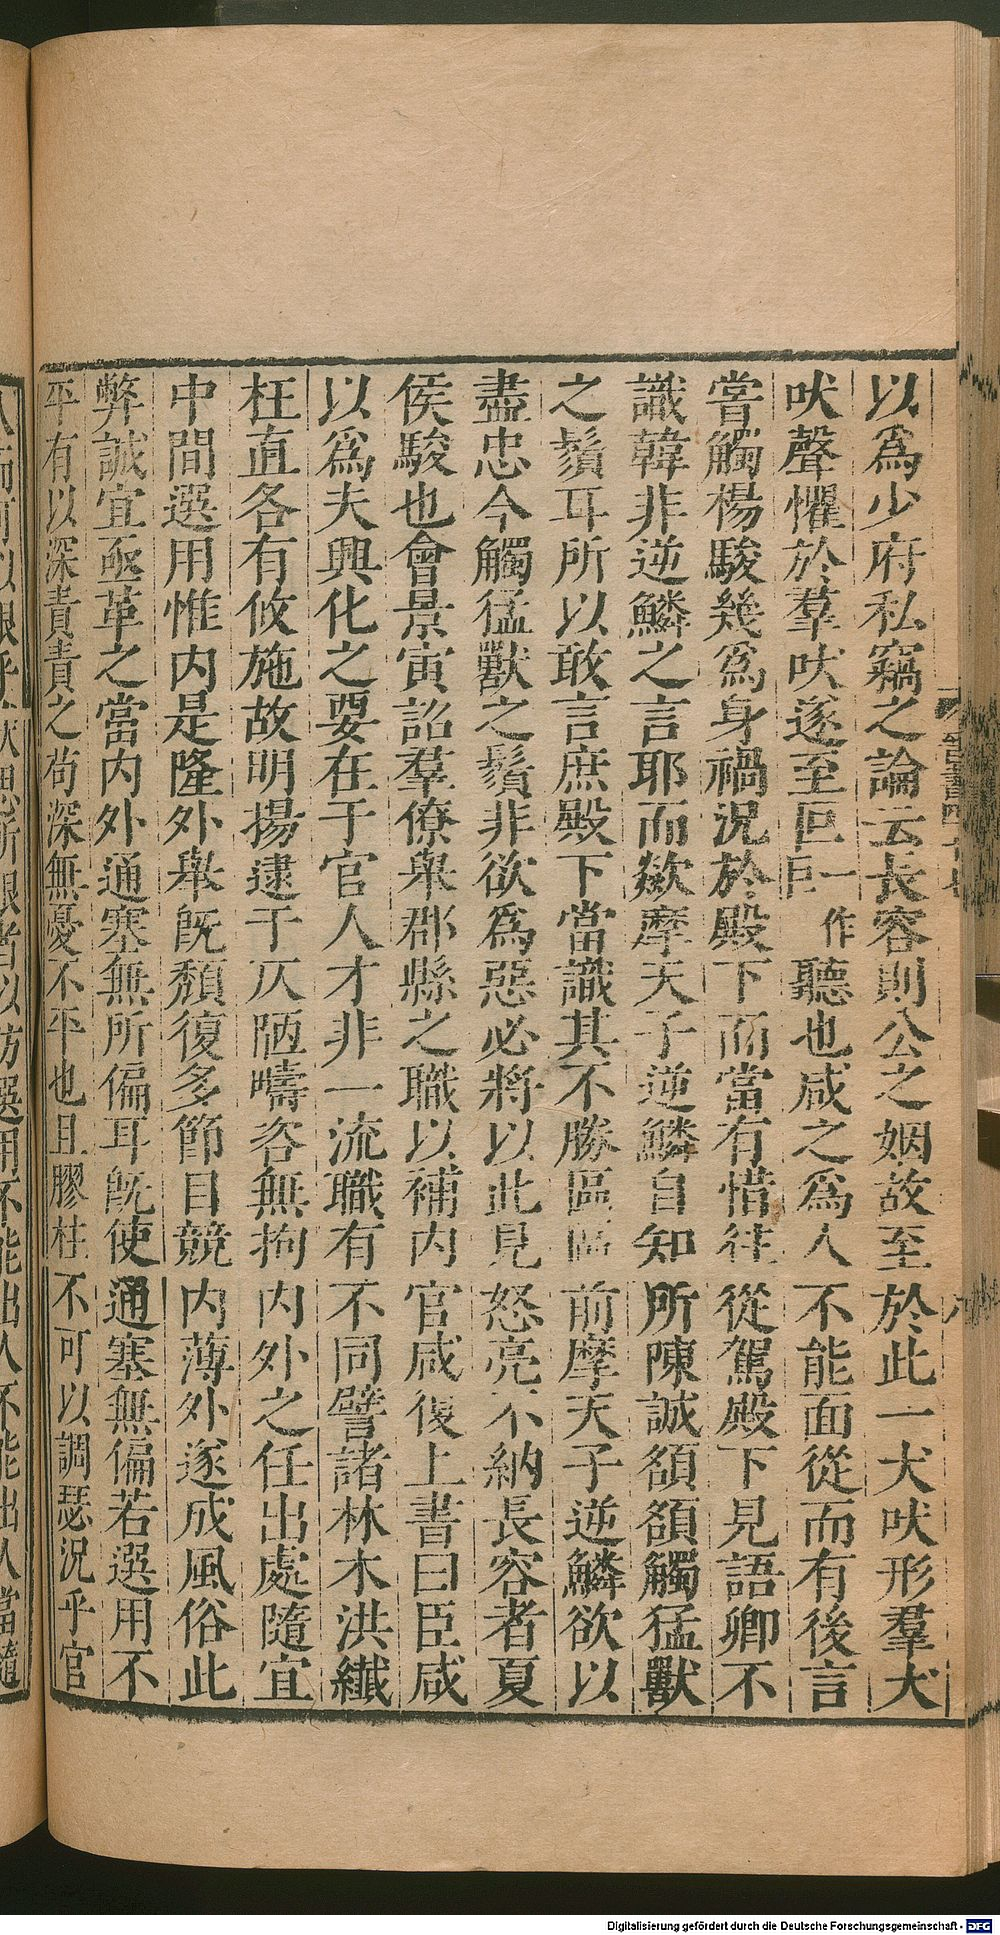 以爲少府私竊之論云長容則公之姻故至於此一犬吠形羣犬
吠聲懼於羣吠遂至叵一作巨聽也咸之爲人不能面從而有後言
嘗觸楊駿幾爲身禍況於殿下而當有惜往從駕殿下見語卿不
識韓非逆鱗之言耶而欻摩天子逆鱗自知所陳誠頟頟觸猛獸
之鬚耳所以敢言庶殿下當識其不勝區區前摩天子逆鱗欲以
盡忠今觸猛獸之鬚非欲爲惡必將以此見怒亮不納長容者夏
侯駿也會景寅詔羣僚舉郡縣之職以補内官咸復上書曰臣咸
以爲夫興化之要在于官人才非一流職有不同譬諸林木洪纎
枉直各有攸施故明揚逮于仄陋疇咨無拘内外之任出處隨宜
中間選用惟内是隆外舉旣頹復多節目競内薄外遂成風俗此
弊誠宜亟革之當内外通塞無所偏耳旣使通塞無偏若選用不
平有以深責責之苟深無憂不平也且膠柱不可以調瑟況乎官
Digitalisierung gefördert durch die Deutsche Forschungsgemeinschaft - DFG